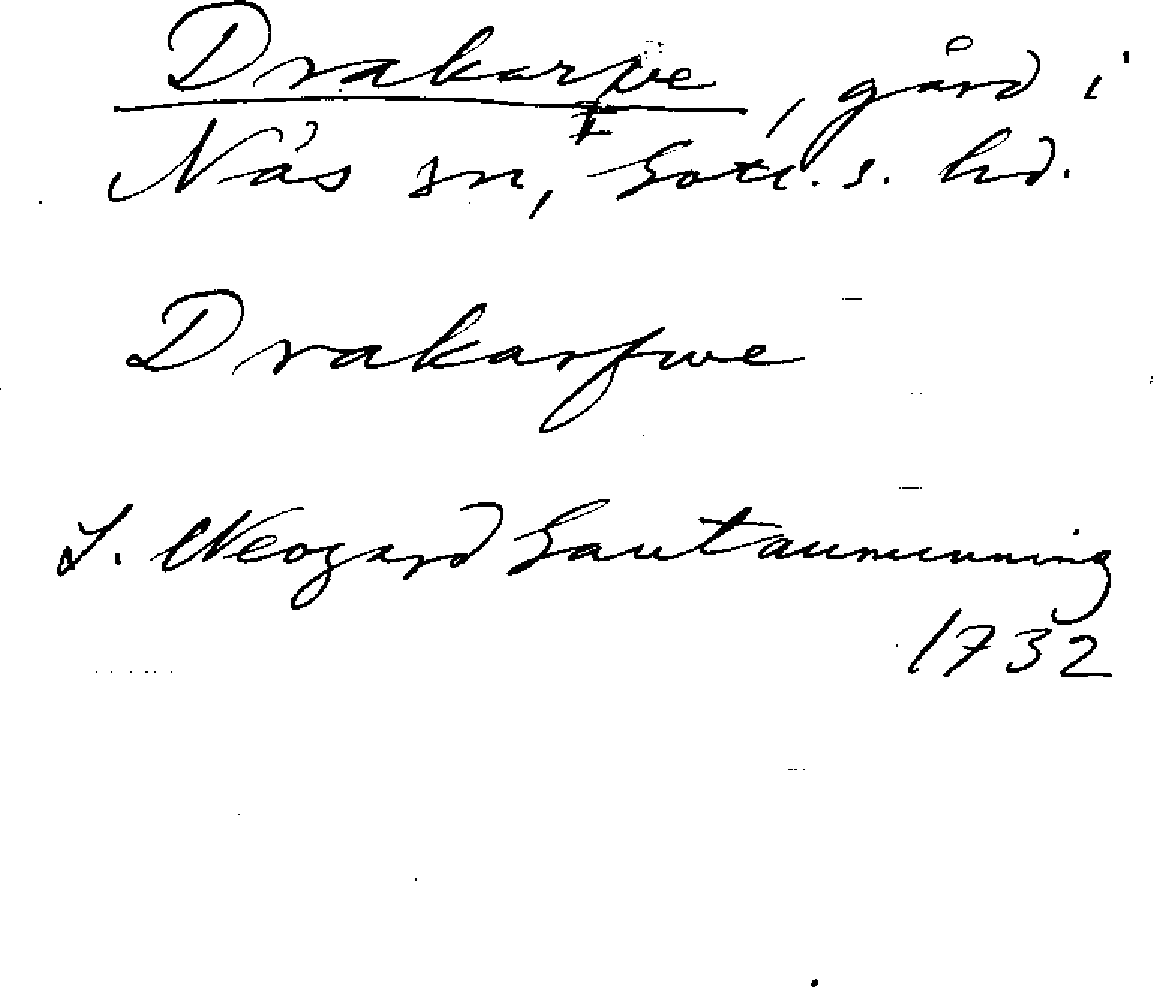 Drakarve, gård i
Näs sn, Gotl. s. hd.
Drakarfwe
J. Neogard Gautauminning
1732